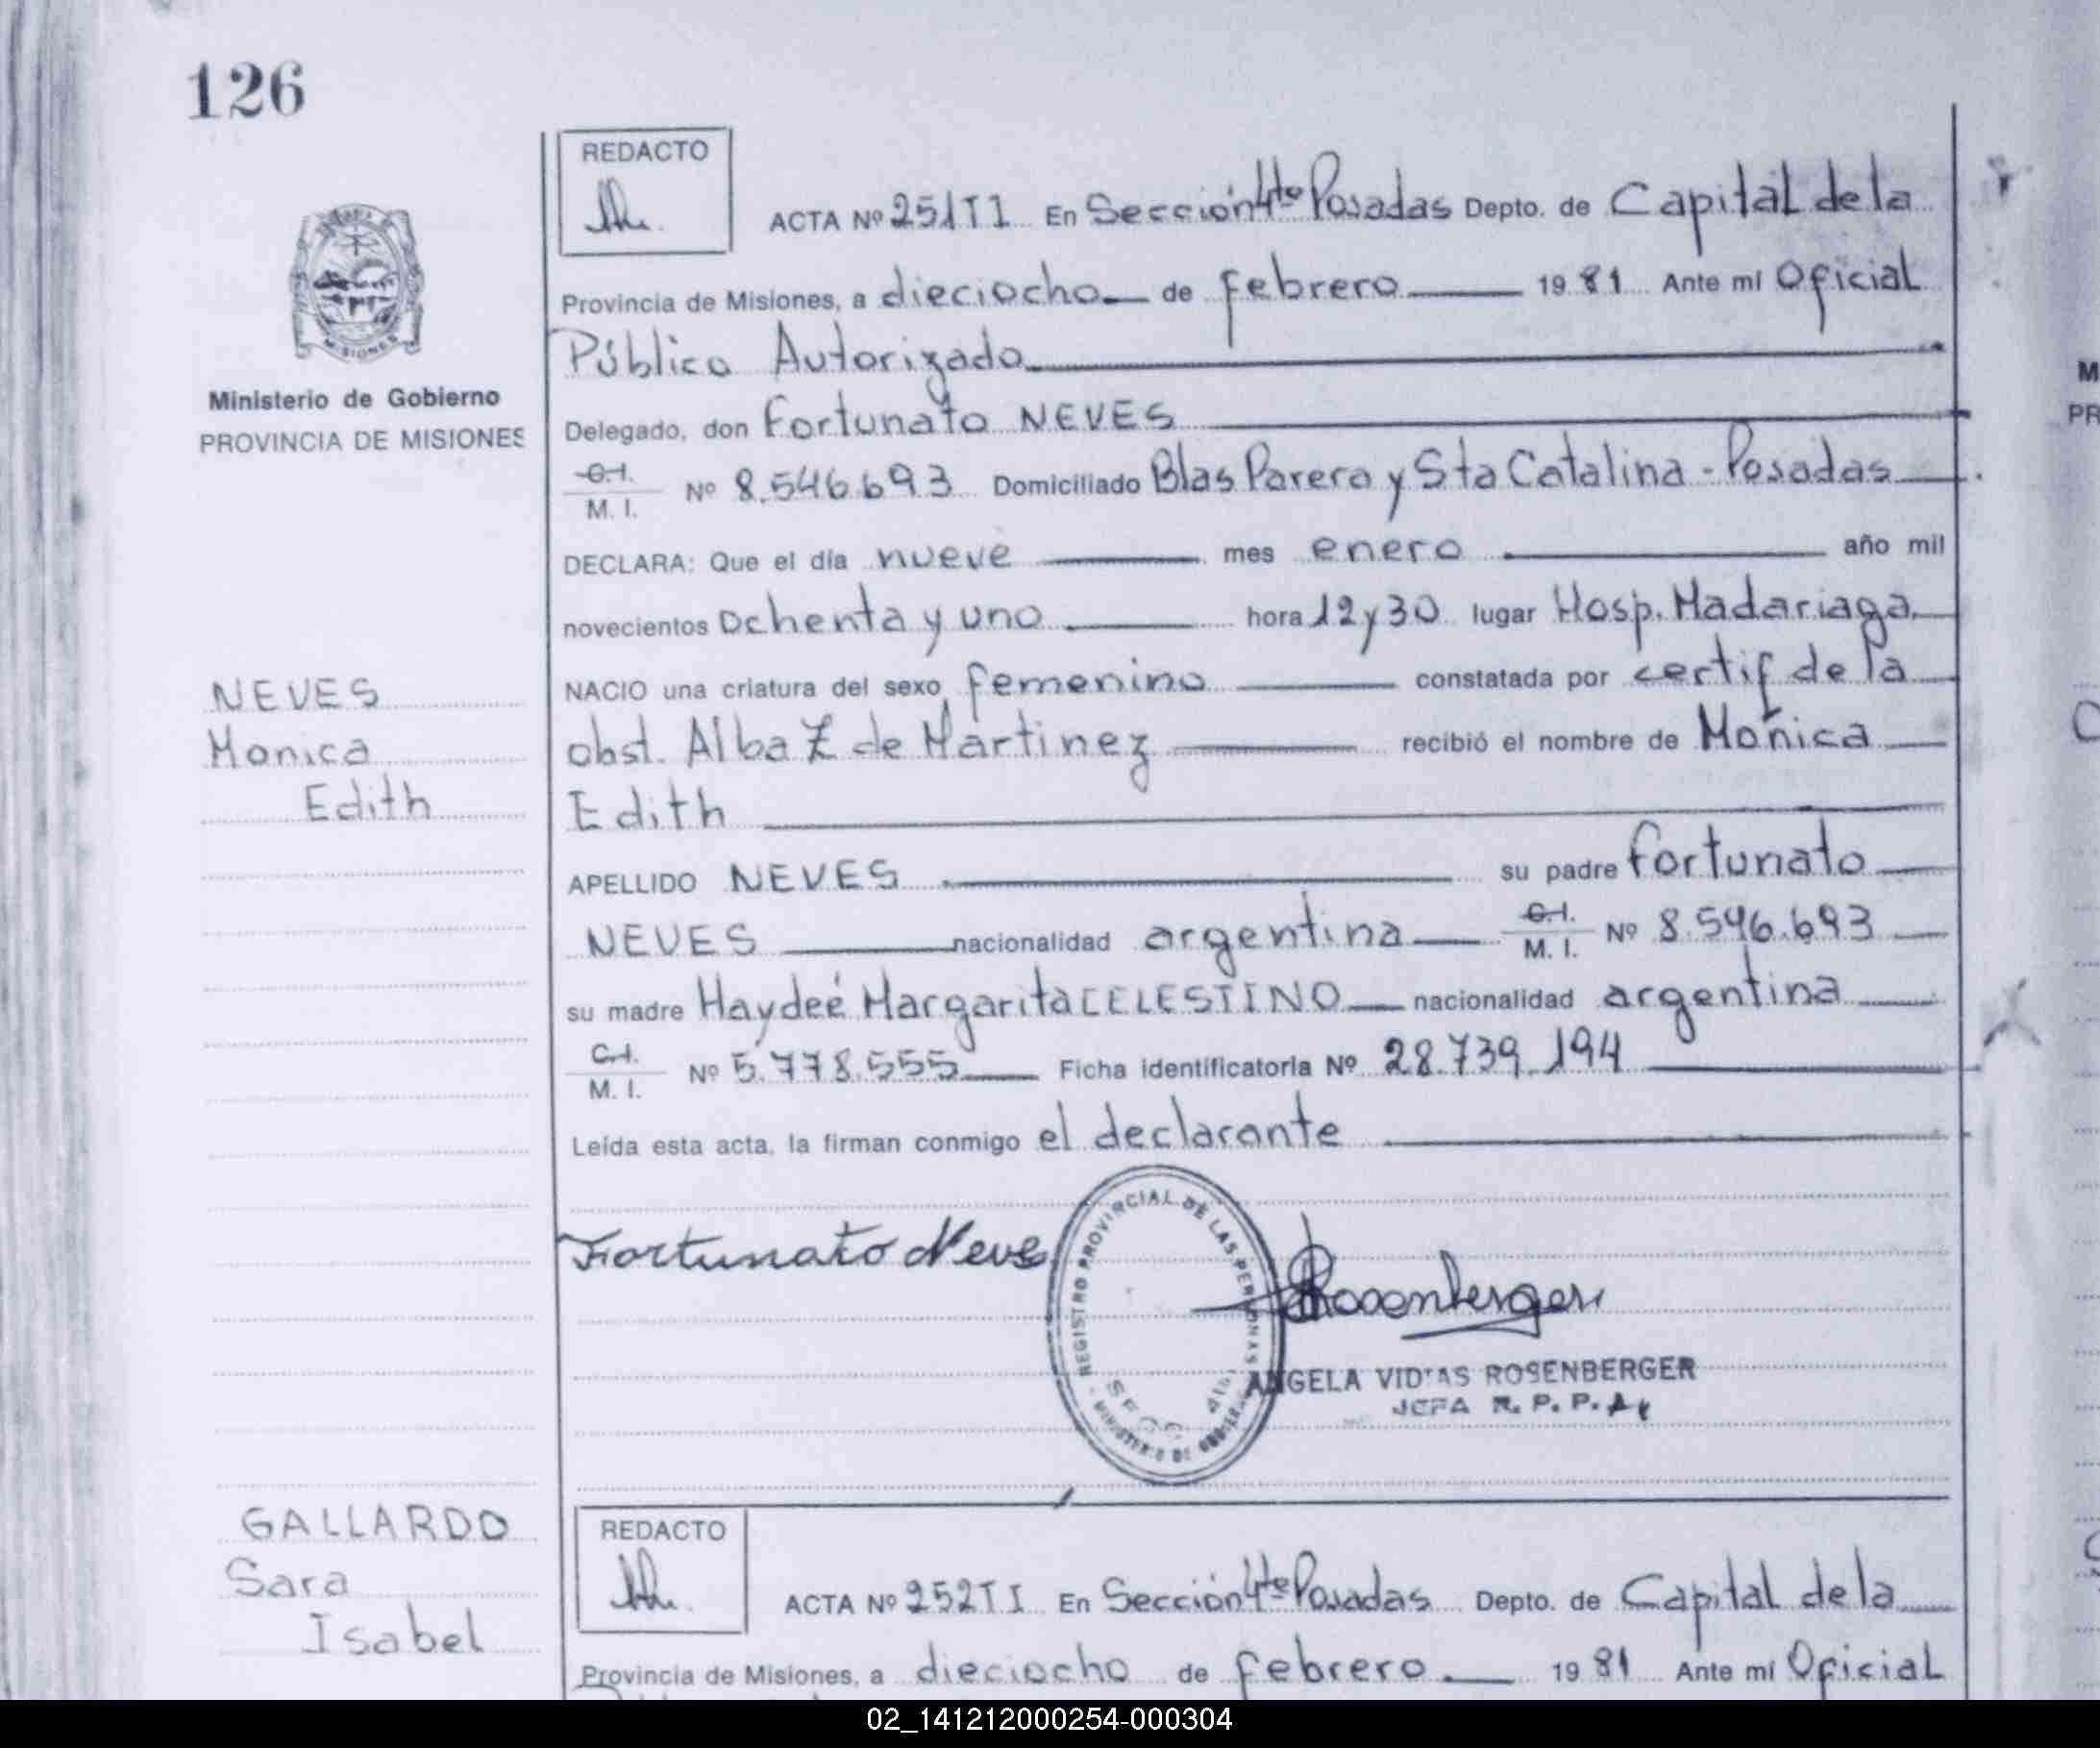 126
REDACTO
ACTA Nº 251 T I En Sección 4ta Posadas Depto. de Capital de la
Provincia de Misiones, a dieciocho de Febrero 1981 Ante mí Oficial
Público Autorizado
MISIONES
Ministerio de Gobierno
PROVINCIA DE MISIONES
Delegado, don Fortunato NEVES
C.I.
M. I. Nº 8.546.693 Domiciliado Blas Parera y Sta Catalina - Posadas
DECLARA: Que el día nueve mes enero año mil
novecientos Ochenta y uno hora 12 y 30 lugar Hosp. Madariaga
NEVES
Monica
Edith
NACIO una criatura del sexo femenino constatada por certif de la
obst. Alba Z de Martinez recibió el nombre de Monica
Edith
APELLIDO NEVES su padre Fortunato
NEVES nacionalidad argentina C.I. M. I. Nº 8.546.693
su madre Haydeé Margarita CELESTINO nacionalidad argentina
C.I.
M. I. Nº 5.778.555 Ficha identificatoria Nº 28.739.194
Leída esta acta, la firman conmigo el declarante
Fortunato Neves
REGISTRO PROVINCIAL DE LAS PERSONAS
MINISTERIO DE GOBIERNO
Rosenberger
ANGELA VIDAS ROSENBERGER
JEFA R. P. P.
GALLARDO
Sara
Isabel
REDACTO
ACTA Nº 252 T I En Sección 4ta Posadas Depto. de Capital de la
Provincia de Misiones, a dieciocho de Febrero 1981 Ante mí Oficial
02_141212000254-000304